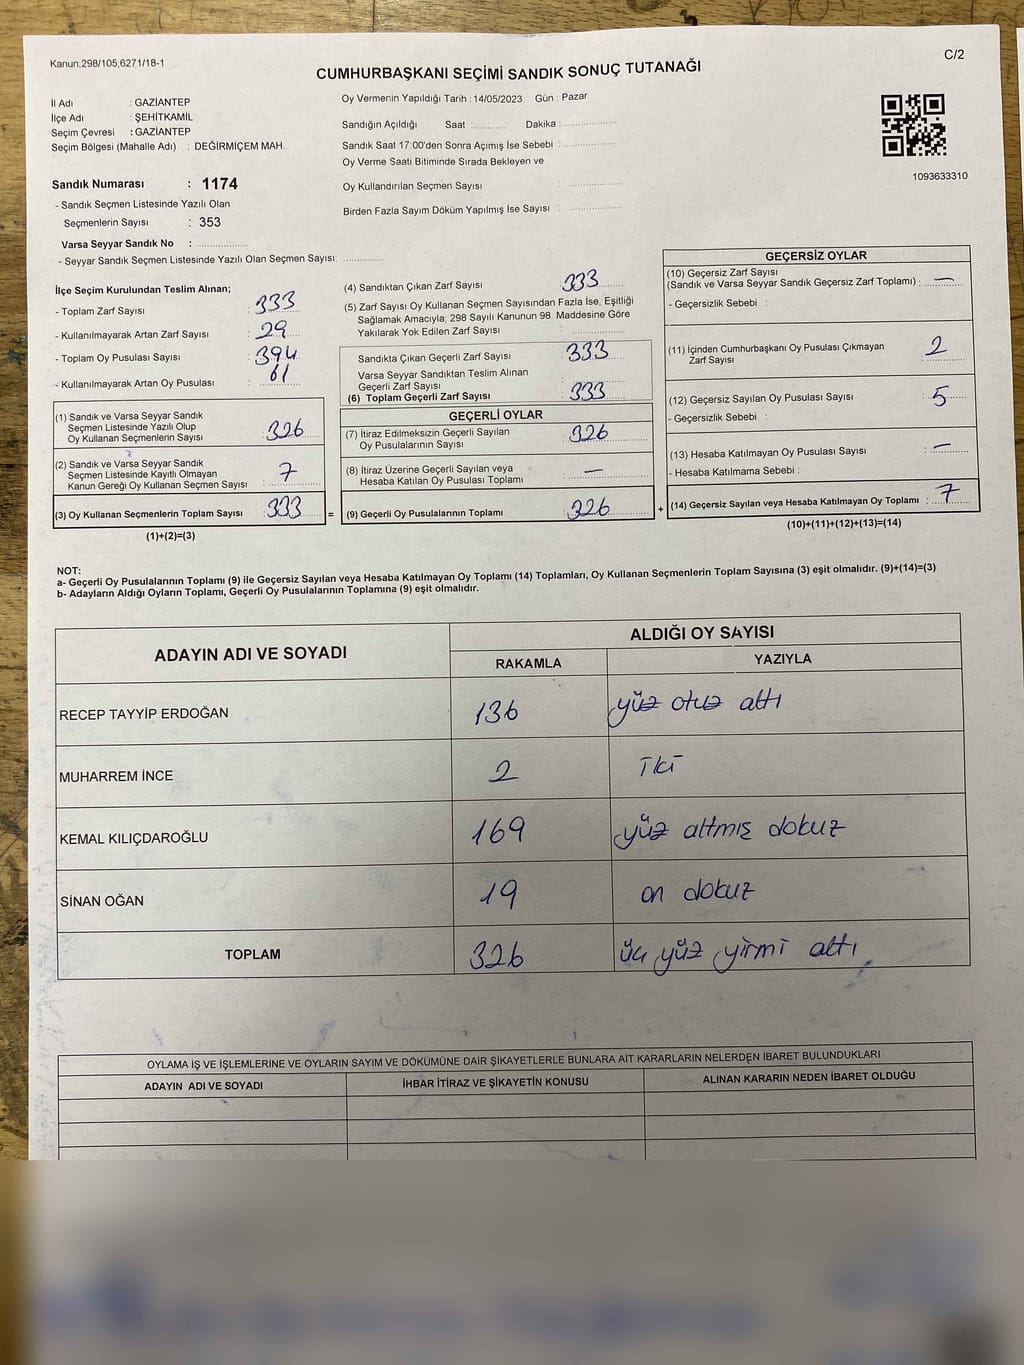 Kanun;298/105;6271/18-1
C/2
CUMHURBAŞKANI SEÇİMİ SANDIK SONUÇ TUTANAĞI
İl Adı : GAZİANTEP
İlçe Adı : ŞEHİTKAMİL
Seçim Çevresi : GAZİANTEP
Seçim Bölgesi (Mahalle Adı) : DEĞİRMİÇEM MAH.
Sandık Numarası : 1174
- Sandık Seçmen Listesinde Yazılı Olan
Seçmenlerin Sayısı : 353
Varsa Seyyar Sandık No : ................
- Seyyar Sandık Seçmen Listesinde Yazılı Olan Seçmen Sayısı: .............
Oy Vermenin Yapıldığı Tarih : 14/05/2023 Gün : Pazar
Sandığın Açıldığı Saat :........... Dakika : ................
Sandık Saat 17:00'den Sonra Açımış İse Sebebi : ................
Oy Verme Saati Bitiminde Sırada Bekleyen ve
Oy Kullandırılan Seçmen Sayısı : ................
Birden Fazla Sayım Döküm Yapılmış İse Sayısı : ................
1093633310
İlçe Seçim Kurulundan Teslim Alınan;
- Toplam Zarf Sayısı : 333
- Kullanılmayarak Artan Zarf Sayısı : 29
- Toplam Oy Pusulası Sayısı : 394
- Kullanılmayarak Artan Oy Pusulası : 61
(1) Sandık ve Varsa Seyyar Sandık
Seçmen Listesinde Yazılı Olup
Oy Kullanan Seçmenlerin Sayısı : 326
(2) Sandık ve Varsa Seyyar Sandık
Seçmen Listesinde Kayıtlı Olmayan
Kanun Gereği Oy Kullanan Seçmen Sayısı : 7
(3) Oy Kullanan Seçmenlerin Toplam Sayısı : 333 =
(1)+(2)=(3)
(4) Sandıktan Çıkan Zarf Sayısı : 333
(5) Zarf Sayısı Oy Kullanan Seçmen Sayısından Fazla İse, Eşitliği
Sağlamak Amacıyla; 298 Sayılı Kanunun 98. Maddesine Göre
Yakılarak Yok Edilen Zarf Sayısı : .............
Sandıkta Çıkan Geçerli Zarf Sayısı : 333
Varsa Seyyar Sandıktan Teslim Alınan
Geçerli Zarf Sayısı : .............
(6) Toplam Geçerli Zarf Sayısı : 333
GEÇERLİ OYLAR
(7) İtiraz Edilmeksizin Geçerli Sayılan
Oy Pusulalarının Sayısı : 326
(8) İtiraz Üzerine Geçerli Sayılan veya
Hesaba Katılan Oy Pusulası Toplamı : —
(9) Geçerli Oy Pusulalarının Toplamı : 326 +
GEÇERSİZ OYLAR
(10) Geçersiz Zarf Sayısı
(Sandık ve Varsa Seyyar Sandık Geçersiz Zarf Toplamı) : —
- Geçersizlik Sebebi :
(11) İçinden Cumhurbaşkanı Oy Pusulası Çıkmayan
Zarf Sayısı : 2
(12) Geçersiz Sayılan Oy Pusulası Sayısı : 5
- Geçersizlik Sebebi :
(13) Hesaba Katılmayan Oy Pusulası Sayısı : —
- Hesaba Katılmama Sebebi :
(14) Geçersiz Sayılan veya Hesaba Katılmayan Oy Toplamı : 7
(10)+(11)+(12)+(13)=(14)
NOT:
a- Geçerli Oy Pusulalarının Toplamı (9) ile Geçersiz Sayılan veya Hesaba Katılmayan Oy Toplamı (14) Toplamları, Oy Kullanan Seçmenlerin Toplam Sayısına (3) eşit olmalıdır. (9)+(14)=(3)
b- Adayların Aldığı Oyların Toplamı, Geçerli Oy Pusulalarının Toplamına (9) eşit olmalıdır.
ADAYIN ADI VE SOYADI
ALDIĞI OY SAYISI
RAKAMLA YAZIYLA
RECEP TAYYİP ERDOĞAN 136 yüz otuz altı
MUHARREM İNCE 2 iki
KEMAL KILIÇDAROĞLU 169 yüz altmış dokuz
SİNAN OĞAN 19 on dokuz
TOPLAM 326 üç yüz yirmi altı
OYLAMA İŞ VE İŞLEMLERİNE VE OYLARIN SAYIM VE DÖKÜMÜNE DAİR ŞİKAYETLERLE BUNLARA AİT KARARLARIN NELERDEN İBARET BULUNDUKLARI
ADAYIN ADI VE SOYADI İHBAR İTİRAZ VE ŞİKAYETİN KONUSU ALINAN KARARIN NEDEN İBARET OLDUĞU